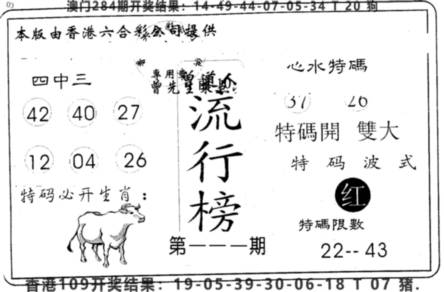 澳门284期开奖结果：14-49-44-07-05-34 T 20 狗
本版由香港六合彩公司提供
四中三
42 40 27
12 04 26
特码必开生肖：
曾先生
流行榜
第一一一期
心水特碼
37 26
特碼開 雙大
特码波式
红
特碼限數
22--43
香港109开奖结果：19-05-39-30-06-18 T 07 猪.